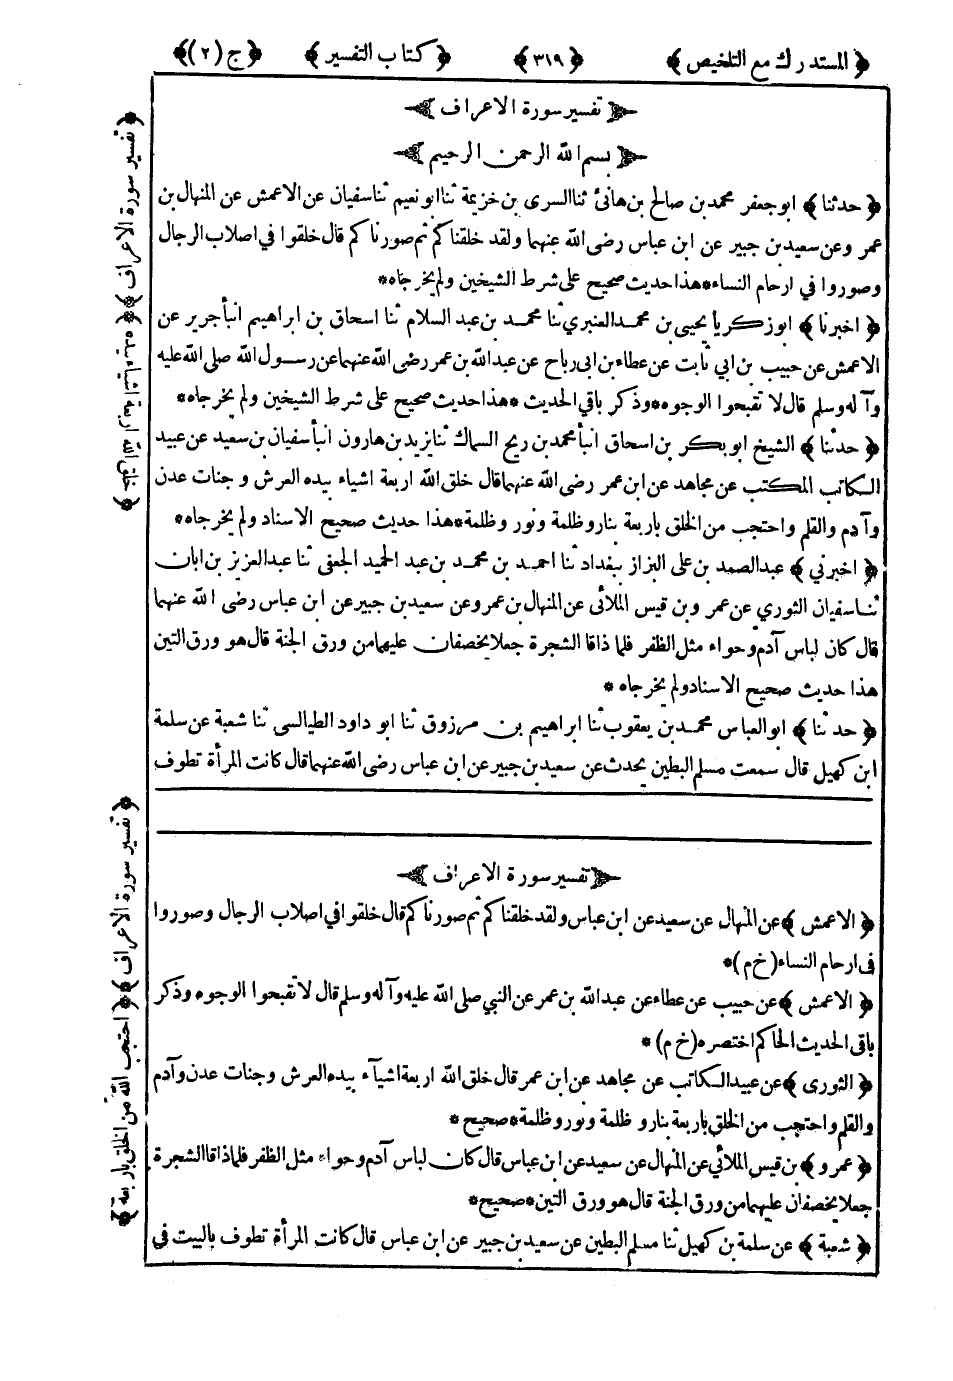 ﴿ المستدرك مع التلخيص ﴾ ﴿ ٣١٩ ﴾ ﴿ كتاب التفسير ﴾ ﴿ ج (٢) ﴾
﴿ تفسير سورة الاعراف ﴾
﴿ بسم الله الرحمن الرحيم ﴾
﴿ حدثنا ﴾ ابو جعفر محمد بن صالح بن هانئ ثنا السرى بن خزيمة ثنا ابو نعيم ثنا سفيان عن الاعمش عن المنهال بن
عمر وعن سعيد بن جبير عن ابن عباس رضى الله عنهما ولقد خلقناكم ثم صورناكم قال خلقوا في اصلاب الرجال
وصوروا في ارحام النساء * هذا حديث صحيح على شرط الشيخين ولم يخرجاه *
﴿ اخبرنا ﴾ ابو زكريا يحيى بن محمد العنبري ثنا محمد بن عبد السلام ثنا اسحاق بن ابراهيم انبأ جرير عن
الاعمش عن حبيب بن ابي ثابت عن عطاء بن ابى رباح عن عبد الله بن عمر رضى الله عنهما عن رسول الله صلى الله عليه
وآله وسلم قال لا تقبحوا الوجوه * وذكر باقي الحديث * هذا حديث صحيح على شرط الشيخين ولم يخرجاه *
﴿ حدثنا ﴾ الشيخ ابو بكر بن اسحاق انبأ محمد بن ريح السماك ثنا يزيد بن هارون انبأ سفيان بن سعيد عن عبيد
الكاتب المكتب عن مجاهد عن ابن عمر رضى الله عنهما قال خلق الله اربعة اشياء بيده العرش وجنات عدن
وآدم والقلم واحتجب من الخلق باربعة بنار وظلمة ونور وظلمة * هذا حديث صحيح الاسناد ولم يخرجاه *
﴿ اخبرني ﴾ عبد الصمد بن على البزاز ببغداد ثنا احمد بن محمد بن عبد الحميد الجعفى ثنا عبد العزيز بن ابان
ثنا سفيان الثوري عن عمر و بن قيس الملائى عن المنهال بن عمرو عن سعيد بن جبير عن ابن عباس رضى الله عنهما
قال كان لباس آدم وحواء مثل الظفر فلما ذاقا الشجرة جعلا يخصفان عليهما من ورق الجنة قال هو ورق التين
هذا حديث صحيح الاسناد ولم يخرجاه *
﴿ حدثنا ﴾ ابو العباس محمد بن يعقوب ثنا ابراهيم بن مرزوق ثنا ابو داود الطيالسى ثنا شعبة عن سلمة
ابن كهيل قال سمعت مسلم البطين يحدث عن سعيد بن جبير عن ابن عباس رضى الله عنهما قال كانت المرأة تطوف
﴿ تفسير سورة الاعراف ﴾ ﴿ خلق الله اربعة اشياء بيده ﴾
﴿ تفسير سورة الاعراف ﴾
﴿ الاعمش ﴾ عن المنهال عن سعيد عن ابن عباس ولقد خلقناكم ثم صورناكم قال خلقوا في اصلاب الرجال وصوروا
فى ارحام النساء (خ م) *
﴿ الاعمش ﴾ عن حبيب عن عطاء عن عبد الله بن عمر عن النبي صلى الله عليه وآله وسلم قال لا تقبحوا الوجوه وذكر
باقى الحديث الحاكم اختصره (خ م) *
﴿ الثورى ﴾ عن عبيد الكاتب عن مجاهد عن ابن عمر قال خلق الله اربعة اشيآء بيده العرش وجنات عدن وآدم
والقلم واحتجب من الخلق باربعة بنار و ظلمة ونور وظلمة * صحيح *
﴿ عمر و ﴾ بن قيس الملائي عن المنهال عن سعيد عن ابن عباس قال كان لباس آدم وحواء مثل الظفر فلما ذاقا الشجرة
جعلا يخصفان عليهما من ورق الجنة قال هو ورق التين * صحيح *
﴿ شعبة ﴾ عن سلمة بن كهيل ثنا مسلم البطين عن سعيد بن جبير عن ابن عباس قال كانت المرأة تطوف بالبيت في
﴿ تفسير سورة الأعراف ﴾ ﴿ احتجب الله من الخلق باربعة ﴾